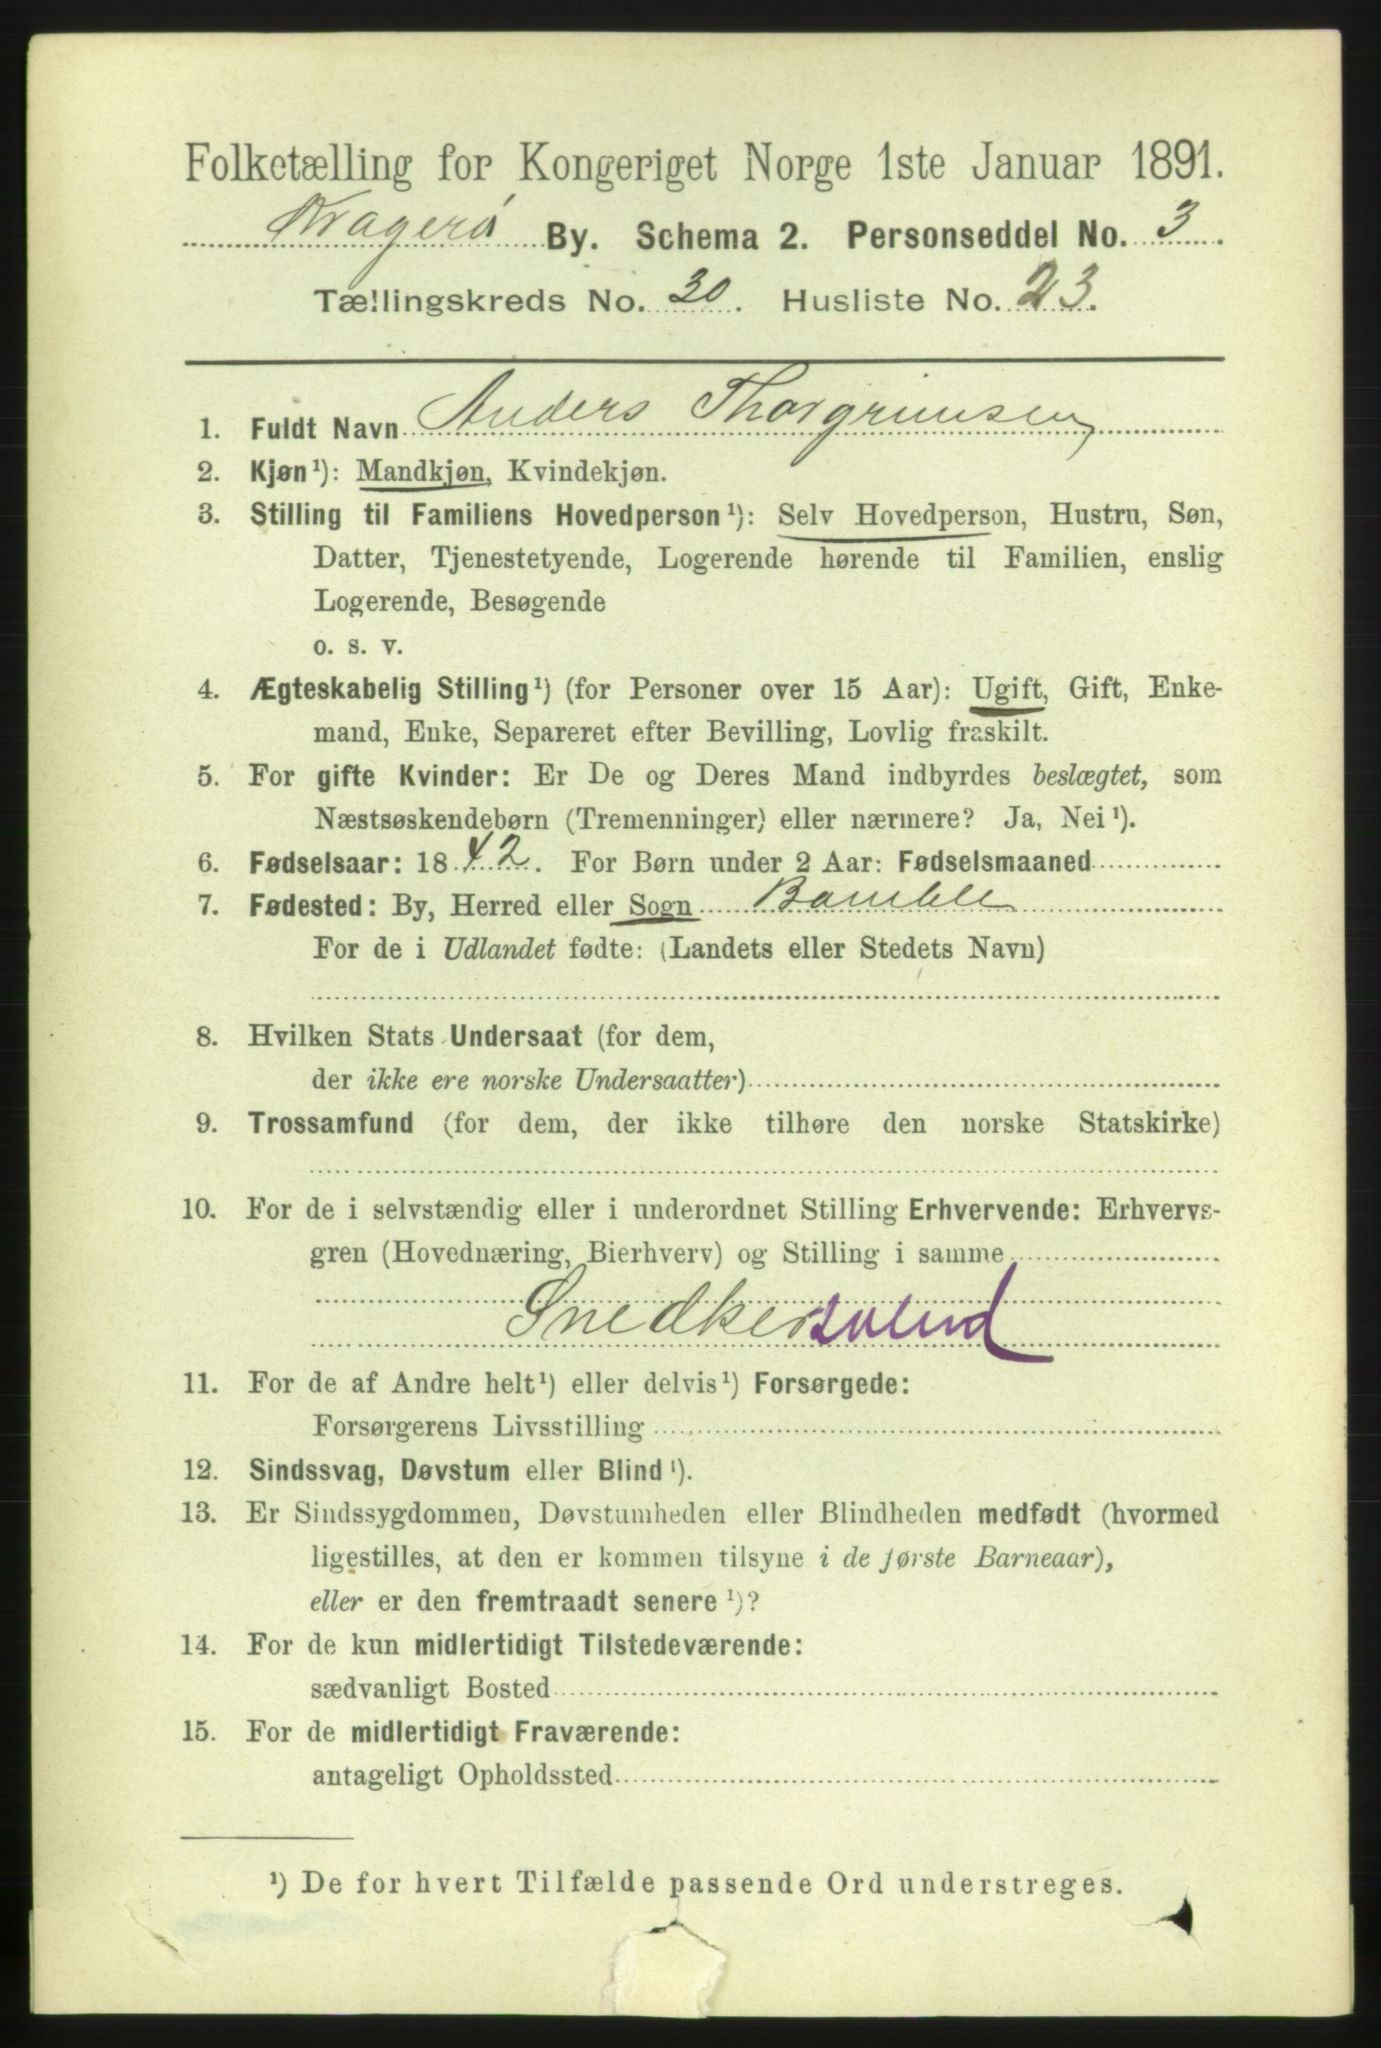 Folketælling for Kongeriget Norge 1ste Januar 1891.
Kragerø By. Schema 2. Personseddel No. 3.
Tællingskreds No. 30. Husliste No. 23.
1. Fuldt Navn Anders Thorgrimsen
2. Kjøn¹): Mandkjøn, Kvindekjøn.
3. Stilling til Familiens Hovedperson¹): Selv Hovedperson, Hustru, Søn,
Datter, Tjenestetyende, Logerende hørende til Familien, enslig
Logerende, Besøgende
o. s. v.
4. Ægteskabelig Stilling¹) (for Personer over 15 Aar): Ugift, Gift, Enke-
mand, Enke, Separeret efter Bevilling, Lovlig fraskilt.
5. For gifte Kvinder: Er De og Deres Mand indbyrdes beslægtet, som
Næstsøskendebørn (Tremenninger) eller nærmere? Ja, Nei¹).
6. Fødselsaar: 1842. For Børn under 2 Aar: Fødselsmaaned
7. Fødested: By, Herred eller Sogn Bamble
For de i Udlandet fødte: (Landets eller Stedets Navn)
8. Hvilken Stats Undersaat (for dem,
der ikke ere norske Undersaatter)
9. Trossamfund (for dem, der ikke tilhøre den norske Statskirke)
10. For de i selvstændig eller i underordnet Stilling Erhvervende: Erhvervs-
gren (Hovednæring, Bierhverv) og Stilling i samme
Snedker
11. For de af Andre helt¹) eller delvis¹) Forsørgede:
Forsørgerens Livsstilling
12. Sindssvag, Døvstum eller Blind¹).
13. Er Sindssygdommen, Døvstumheden eller Blindheden medfødt (hvormed
ligestilles, at den er kommen tilsyne i de første Barneaar),
eller er den fremtraadt senere¹)?
14. For de kun midlertidigt Tilstedeværende:
sædvanligt Bosted
15. For de midlertidigt Fraværende:
antageligt Opholdssted
¹) De for hvert Tilfælde passende Ord understreges.